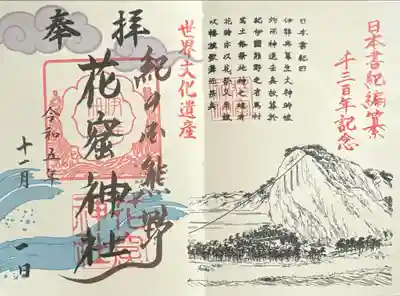 日本書紀編纂
千三百年記念
日本書紀曰
伊弉冉尊生火神時被
灼而神退去矣故葬於
紀伊國熊野之有馬村
焉土俗祭此神之魂者
花時亦以花祭又用鼓
吹幡旗歌舞而祭矣
世界文化遺産
奉拝
紀の国熊野
花窟神社
令和五年
十一月
一日